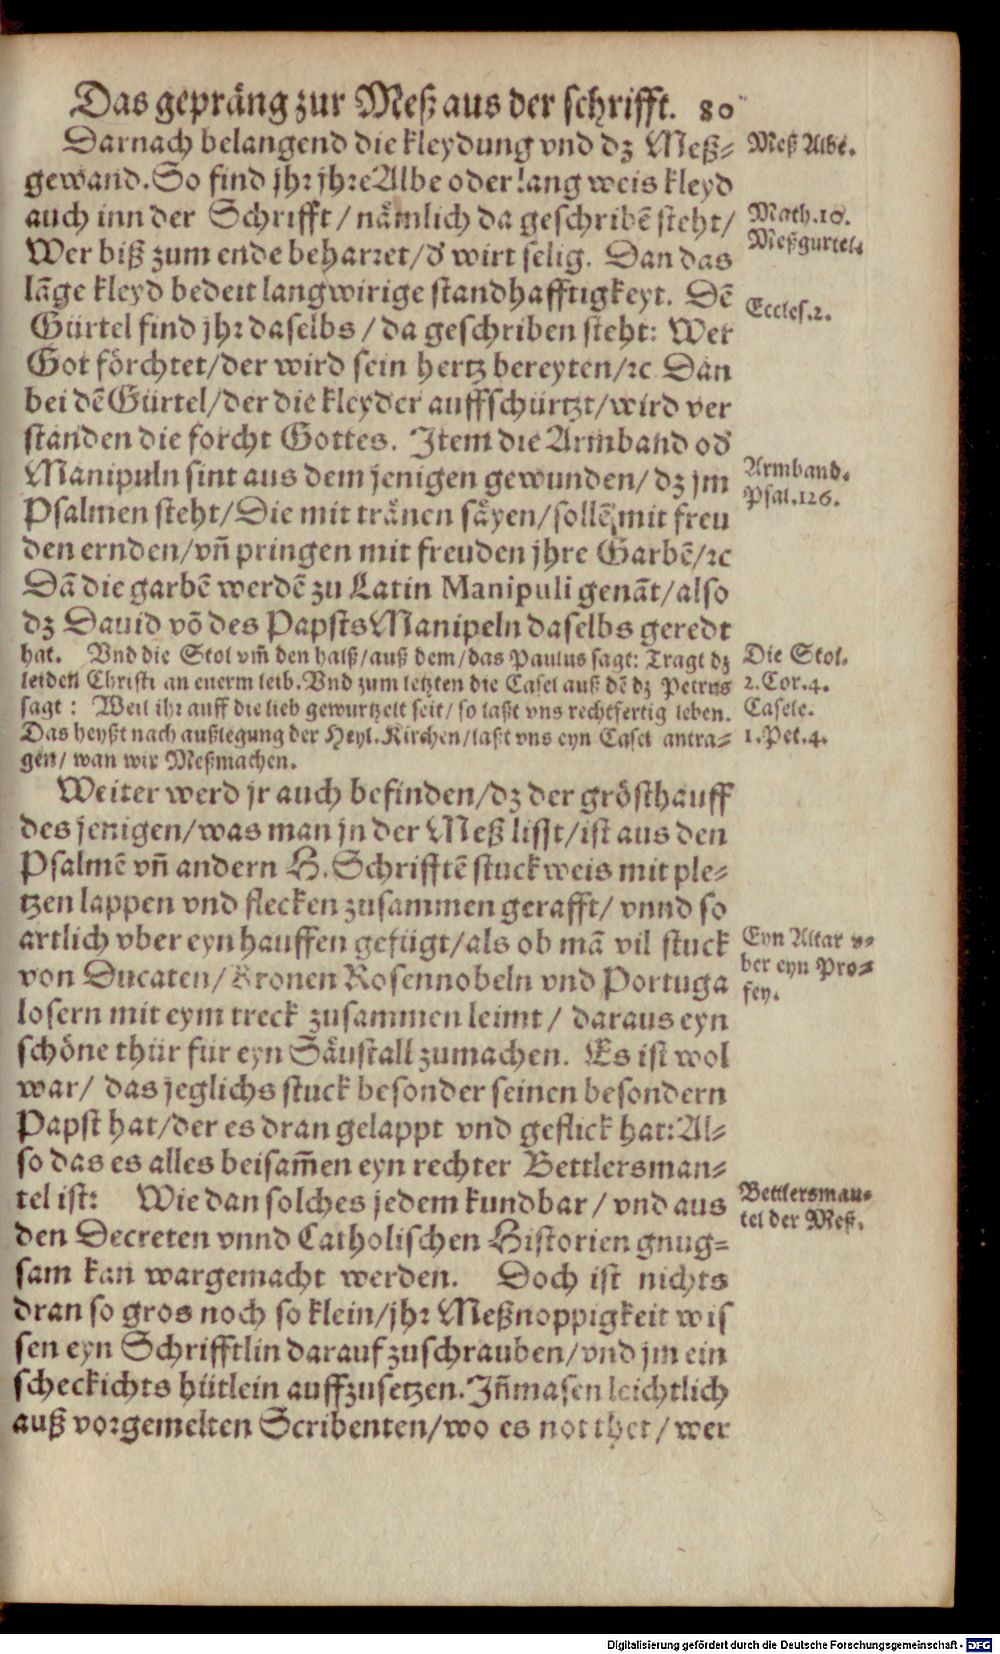 Das gepräng zur Meß aus der schrifft. 80
Darnach belangend die kleydung vnd dz Meß-
gewand. So find jhr jhre Albe oder lang weis kleyd
auch inn der Schrifft/ nämlich da geschribē steht/
Wer biß zum ende beharret/ d' wirt selig. Dan das
lāge kleyd bedeit langwirige standhafftigkeyt. Dē
Gürtel find jhr daselbs/ da geschriben steht: Wer
Got förchtet/der wird sein hertz bereyten/ꝛc Dan
bei dē Gürtel/der die kleyder auffschürtzt/wird ver
standen die forcht Gottes. Item die Armband od'
Manipuln sint aus dem jenigen gewunden/ dz jm
Psalmen steht/ Die mit tränen säyen/sollē mit freu
den ernden/vn̄ pringen mit freuden jhre Garbē/ꝛc
Dā die garbē werdē zu Latin Manipuli genāt/also
dz Dauid vō des Papsts Manipeln daselbs geredt
hat. Vnd die Stol vm̄ den halß/auß dem/das Paulus sagt: Tragt dz
leiden Christi an euerm leib. Vnd zum letzten die Casel auß dē dz Petrus
sagt: Weil ihr auff die lieb gewurtzelt seit/ so laßt vns rechtfertig leben.
Das heyßt nach außlegung der Heyl. Kirchen/laßt vns eyn Casel antra-
gen/ wan wir Meßmachen.
Weiter werd jr auch befinden/dz der grösthauff
des jenigen/was man jn der Meß lißt/ist aus den
Psalmē vn̄ andern H. Schrifftē stuckweis mit ple-
tzen lappen vnd flecken zusammen gerafft/ vnnd so
artlich vber eyn hauffen gefügt/als ob mā vil stuck
von Ducaten/ Kronen Rosennobeln vnd Portuga
losern mit eym treck zusammen leimt/ daraus eyn
schöne thür für eyn Säustall zumachen. Es ist wol
war/ das jeglichs stuck besonder seinen besondern
Papst hat/der es dran gelappt vnd geflick hat: Al-
so das es alles beisam̄en eyn rechter Bettlersman-
tel ist: Wie dan solches jedem kundbar/ vnd aus
den Decreten vnnd Catholischen Historien gnug-
sam kan wargemacht werden. Doch ist nichts
dran so gros noch so klein/jhr Meßnoppigkeit wis
sen eyn Schrifftlin darauf zuschrauben/vnd jm ein
scheckichts hütlein auffzusetzen. Jn̄masen leichtlich
auß vorgemelten Scribenten/wo es not thet/ wer
Meß Albe.
Math.10.
Meßgurtel.
Eccles.2.
Armband.
Psal.126.
Die Stol.
2.Cor.4.
Casele.
1.Pet.4.
Eyn Altar v-
ber eyn Pro-
fey.
Bettlersman-
tel der Meß.
Digitalisierung gefördert durch die Deutsche Forschungsgemeinschaft - DFG